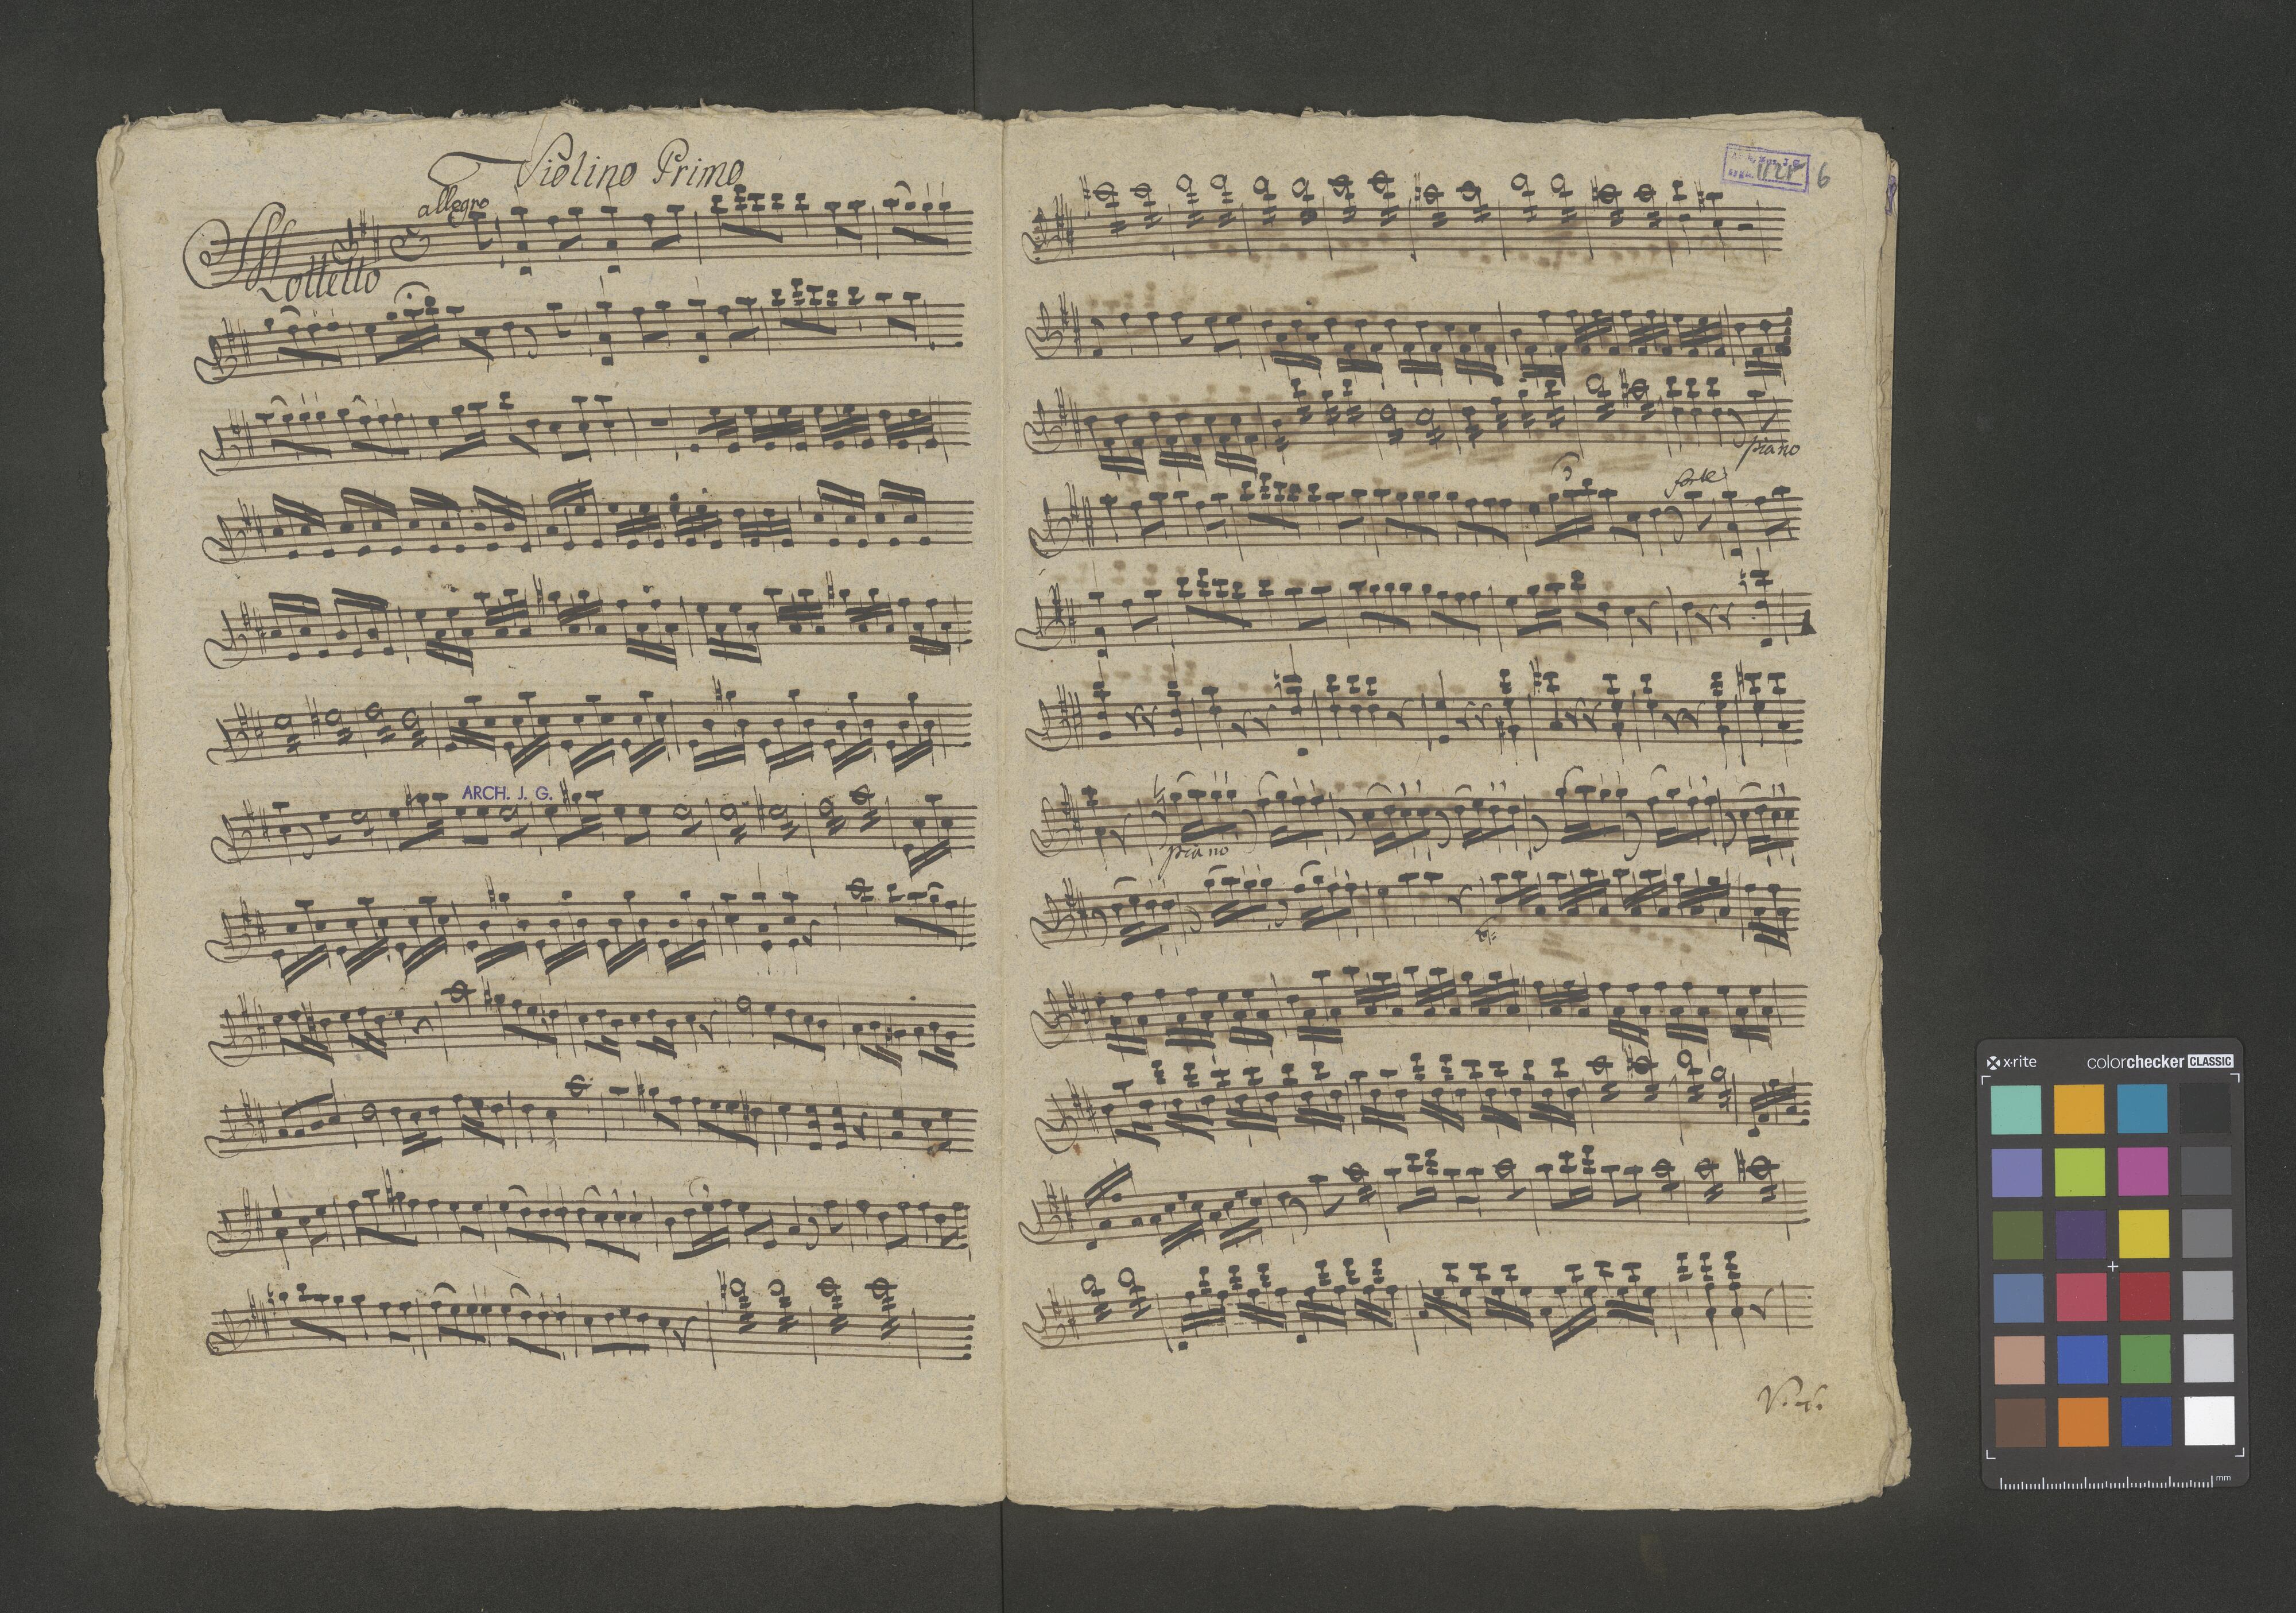 Violino Primo
allegro
Mottetto
ARCH. J. G.
6
piano
forte
piano
V. S.
x·rite colorchecker CLASSIC
mm